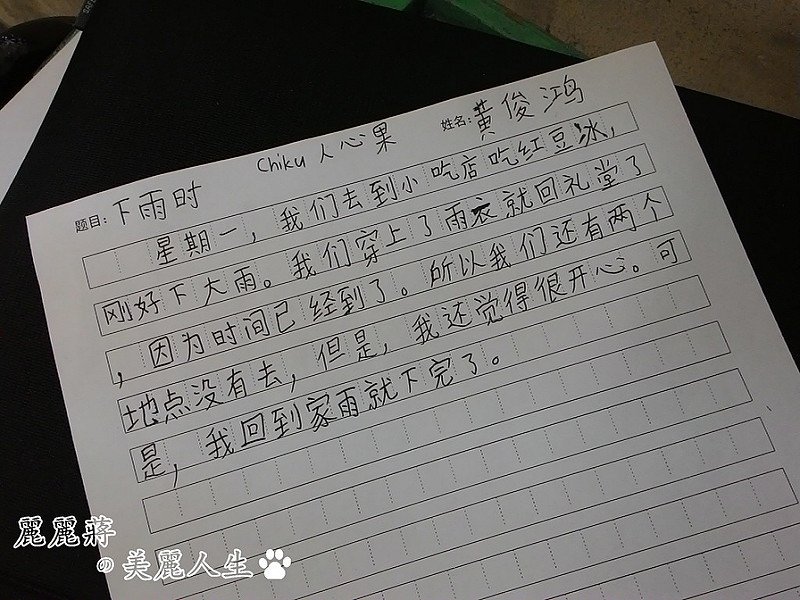 Chiku 人心果
题目: 下雨时
姓名: 黄俊鸿
星期一，我们去到小吃店吃红豆冰，
刚好下大雨。我们穿上了雨衣就回礼堂了
，因为时间已经到了。所以我们还有两个
地点没有去，但是，我还觉得很开心。可
是，我回到家雨就下完了。
麗麗蔣
の美麗人生